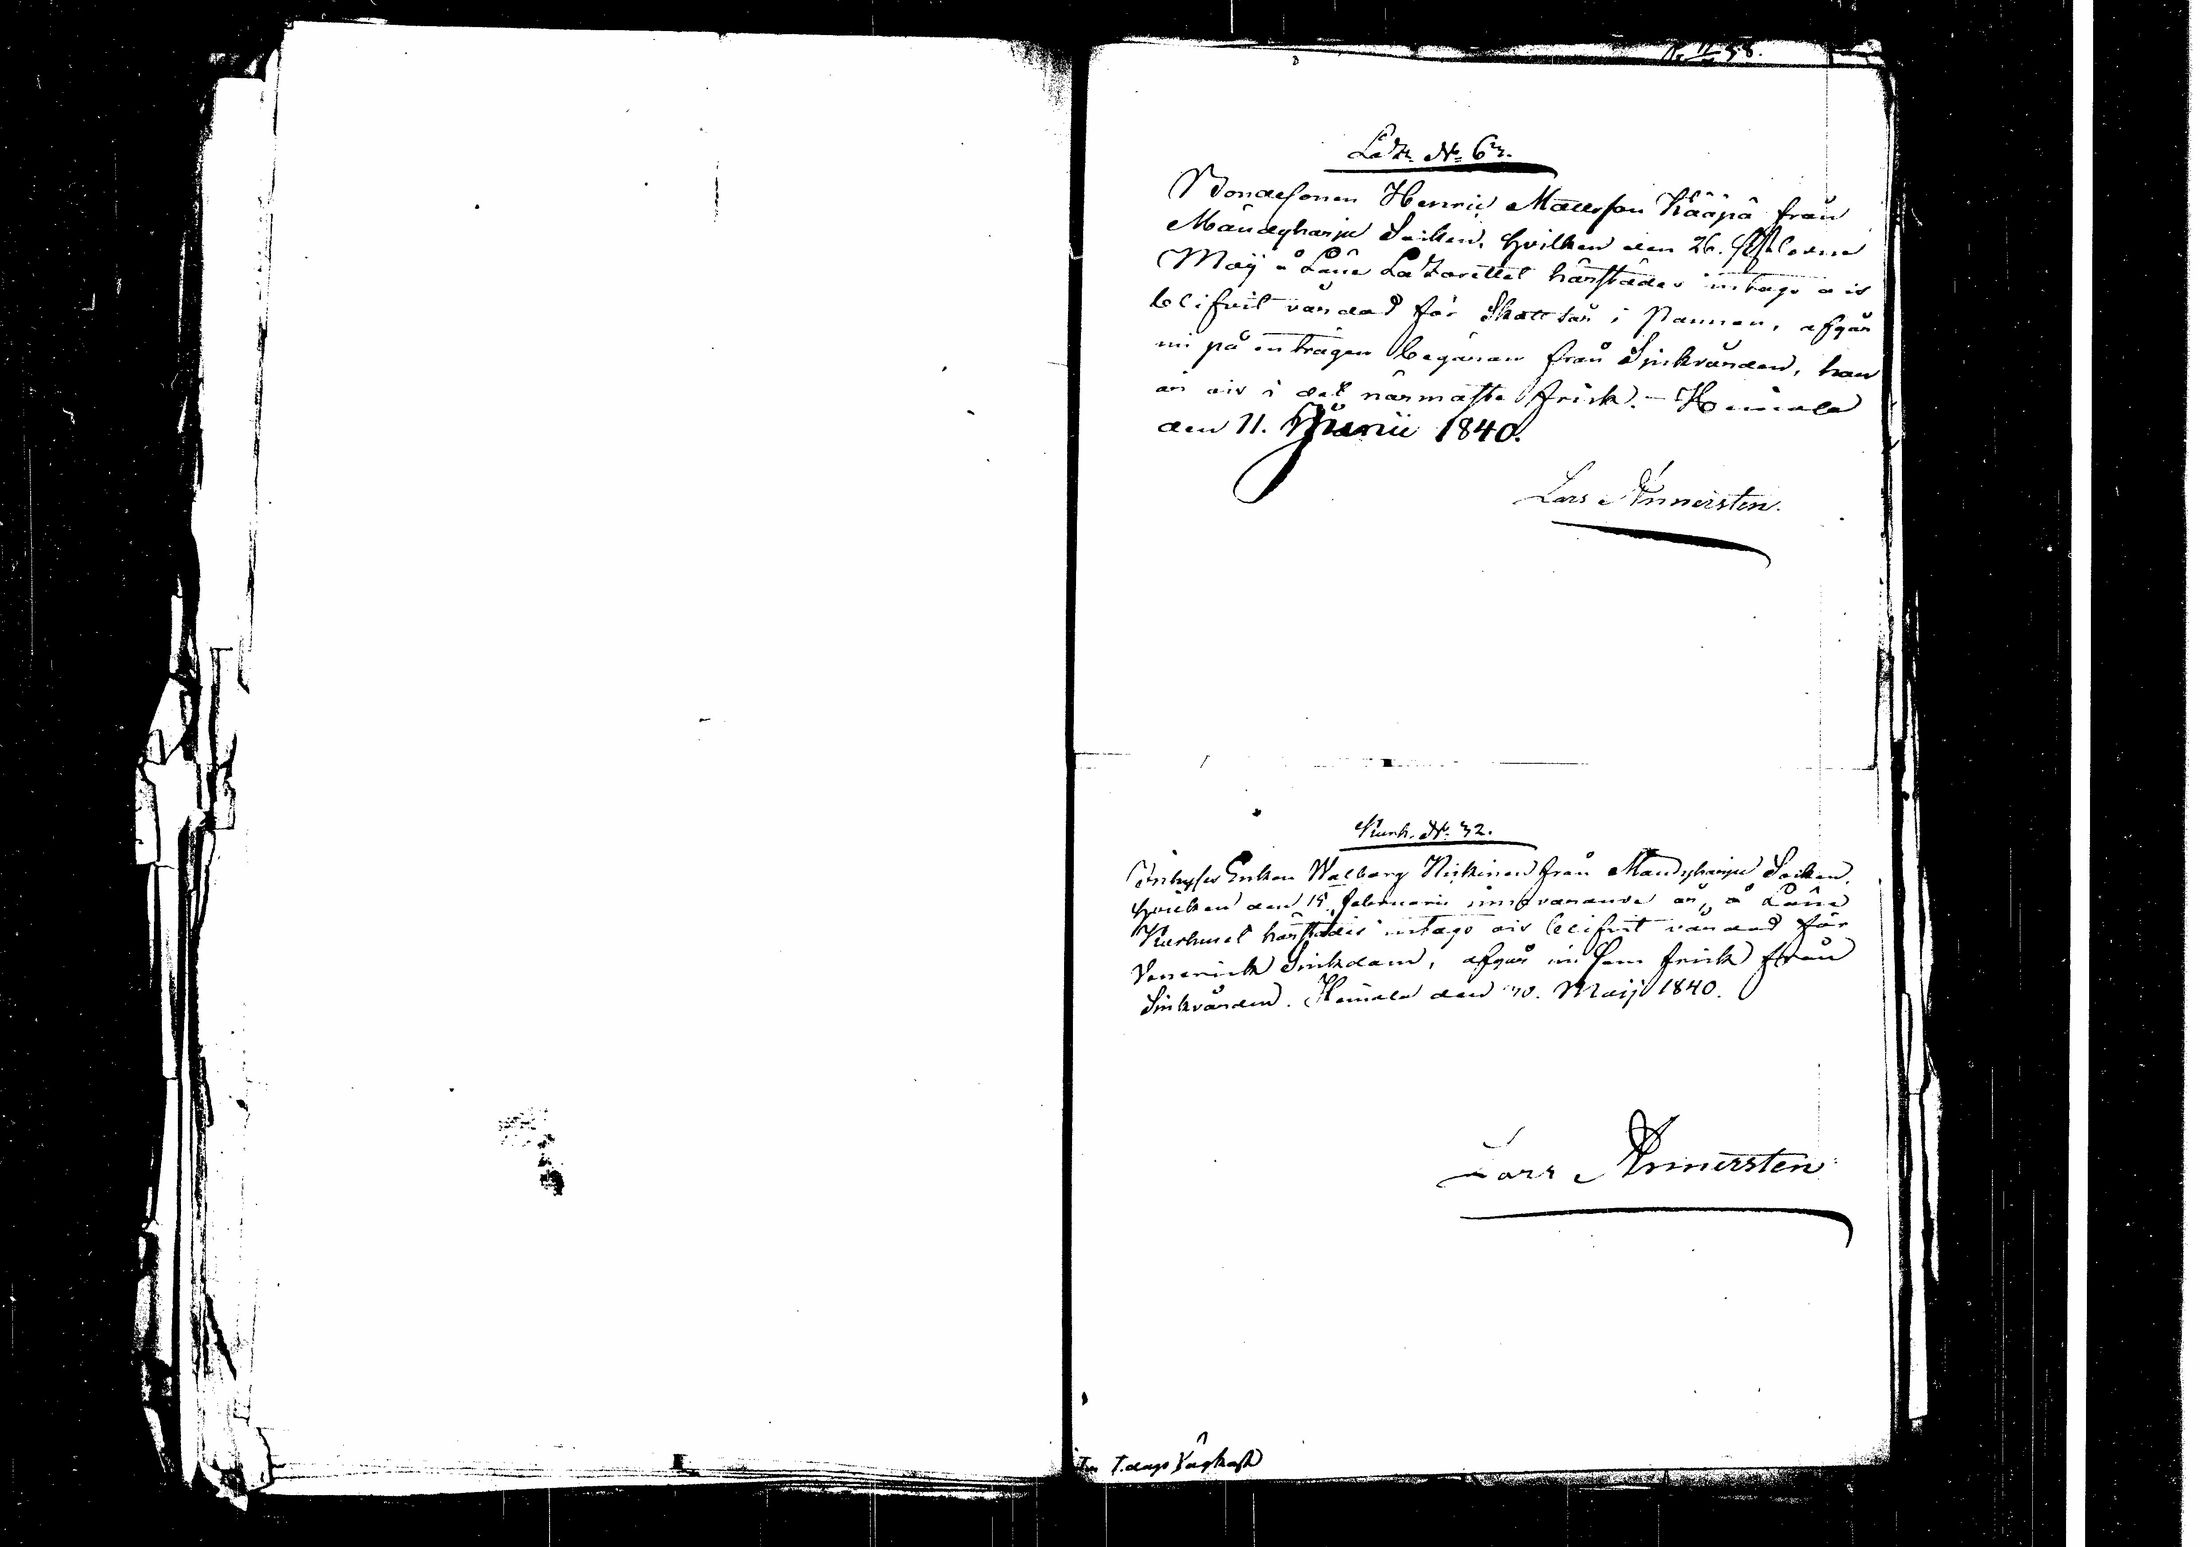 58.
Laz. No 63.
Bondesonen Henric Mattsson Kääpä från
Mändyharju Socken, hvilken den 26. sistledne
Maij å Läne Lazarettet härstädes intagits och
blifvit vårdad för Skottsår i Pannan, afgår
nu på enträgen begäran från Sjukvården, han
är ock i det närmaste frisk. – Heinola
den 11. Junii 1840.
Lars Annersten.
Kurh. No 32.
Inhyses Enkan Walborg Niskinen från Mändyharju Socken,
hvilken den 15 Februarii innevarande år, å Läne
Kurhuset härstädes intagits och blifvit vårdad för
Venerisk Sjukdom, afgår nu som frisk från
Sjukvården. Heinola den 30. Maij 1840.
Lars Annersten